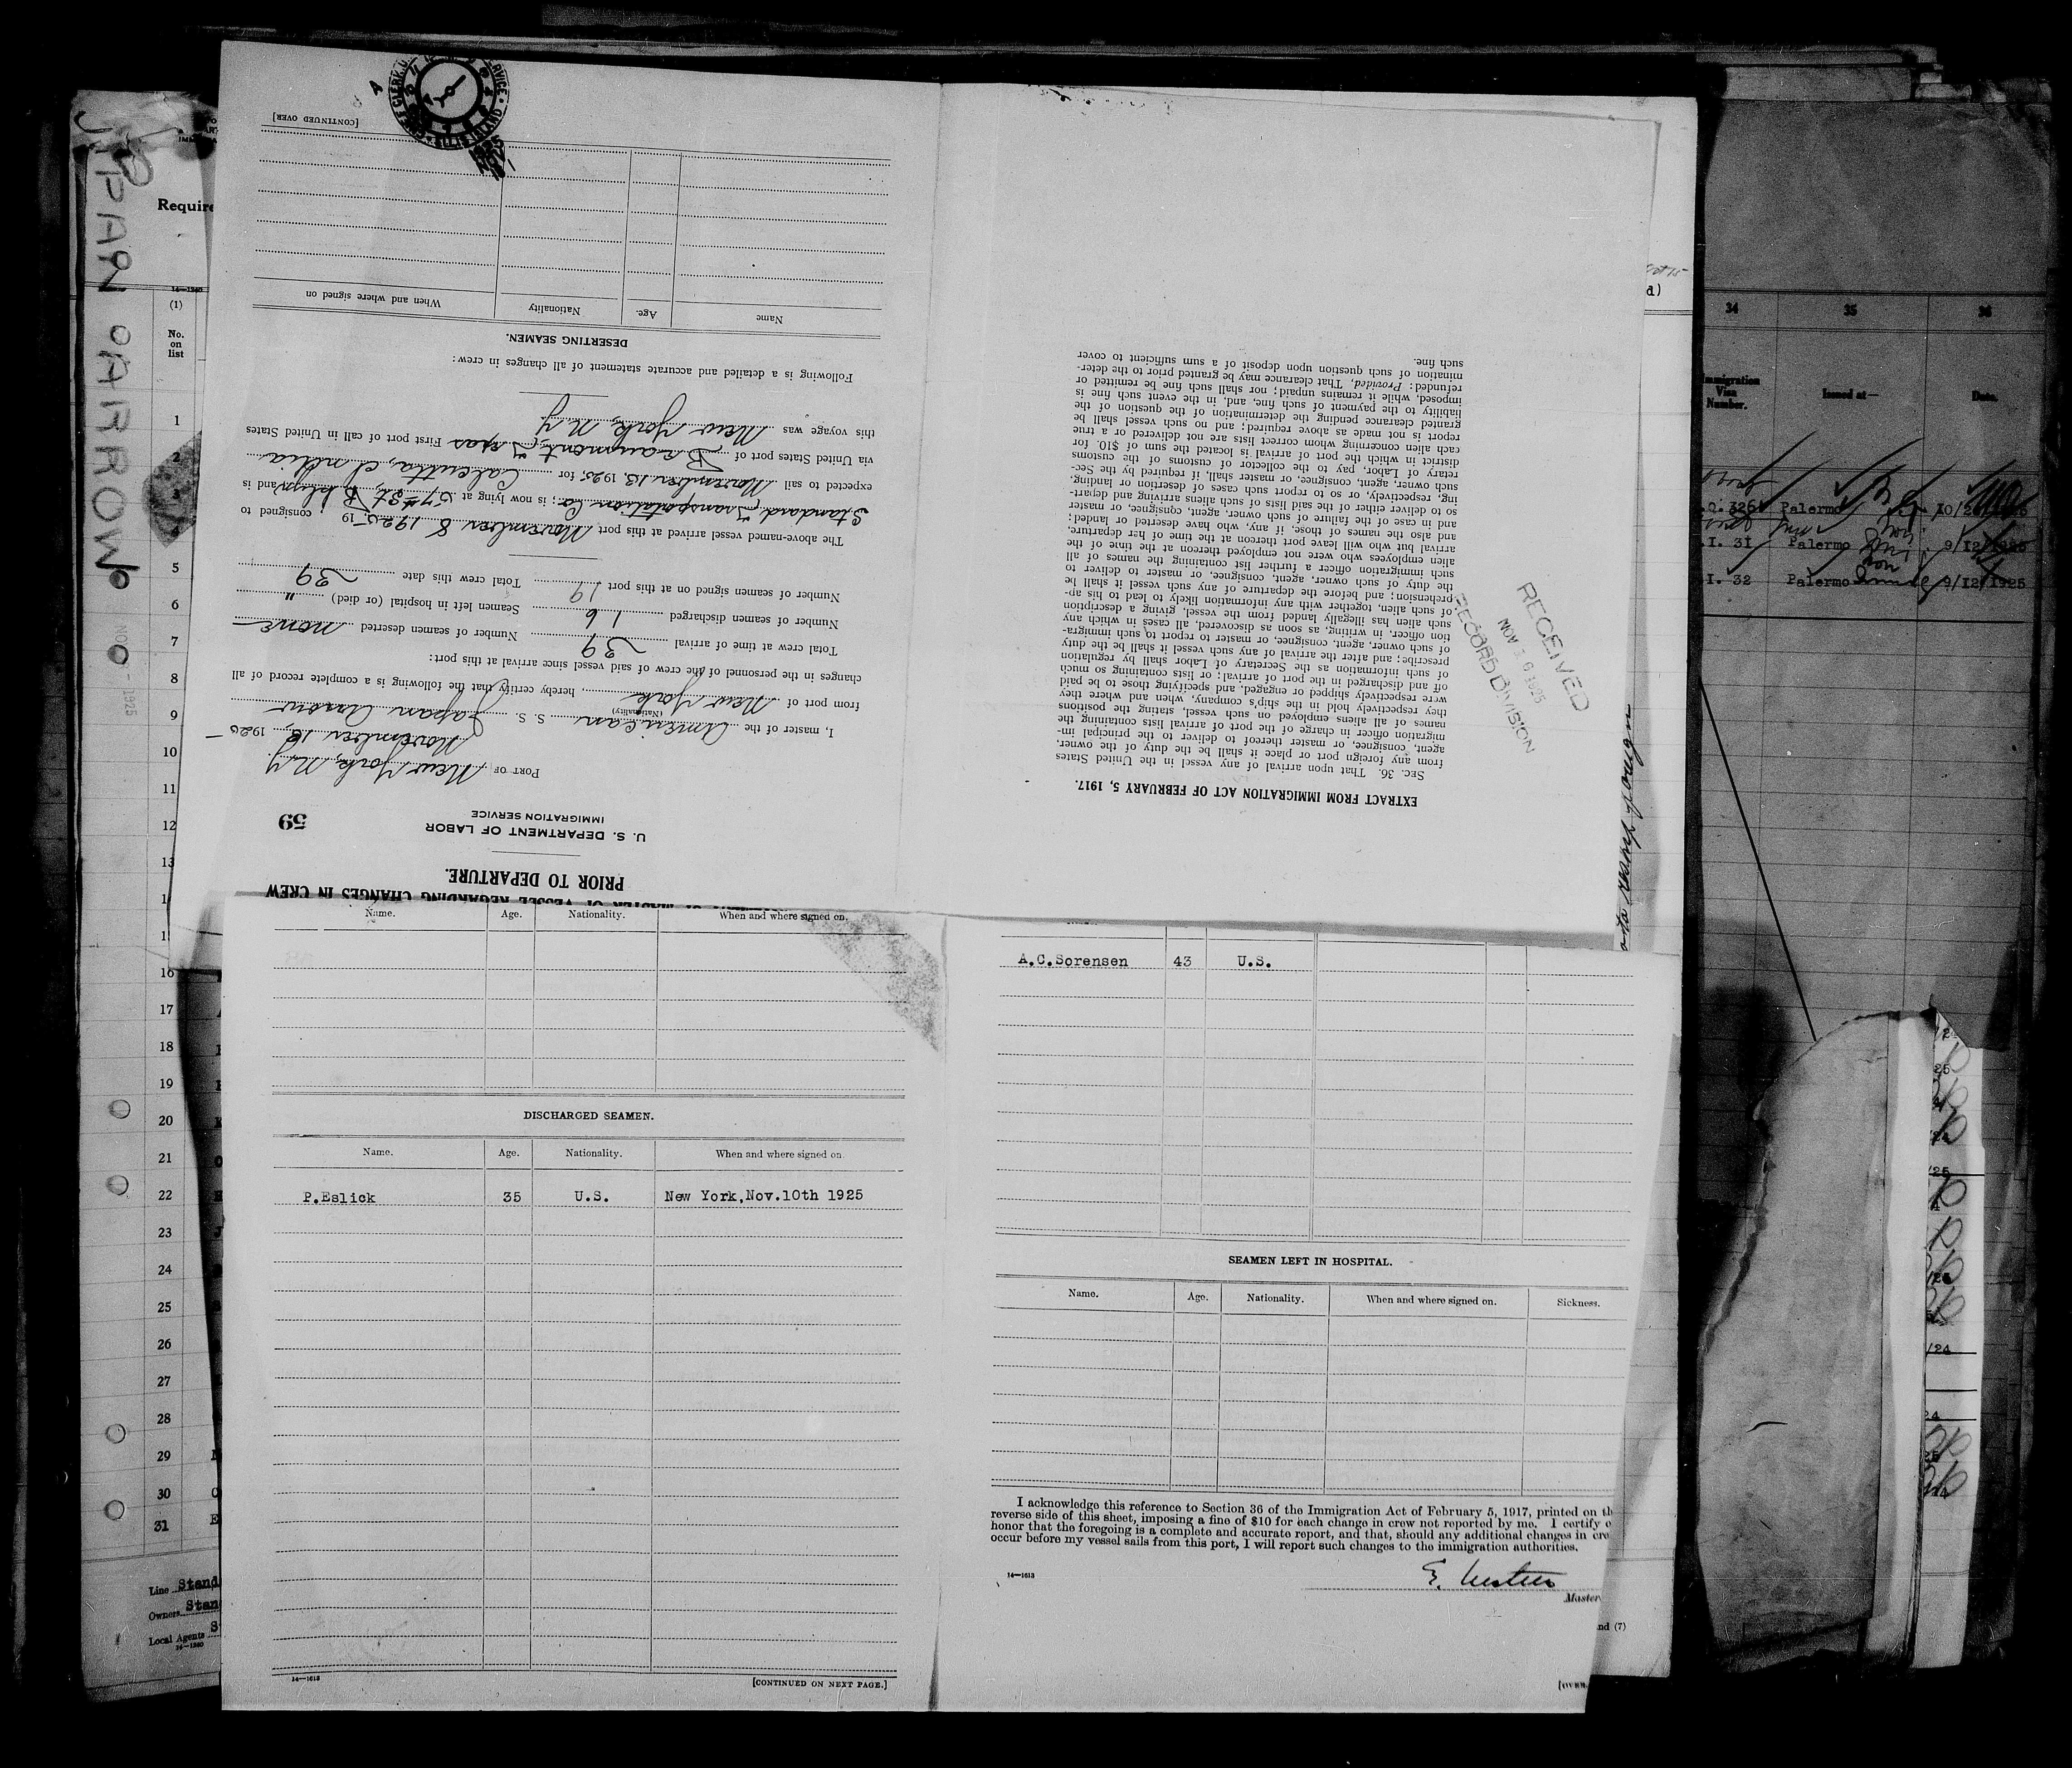 STATEMENT OF MASTER OF VESSEL REGARDING CHANGES IN CREW
PRIOR TO DEPARTURE.
U. S. DEPARTMENT OF LABOR
IMMIGRATION SERVICE
59
PORT OF New York, N.Y.
November 13, 1925
I, master of the American S. S. Japan Arrow
(Nationality)
from port of New York, hereby certify that the following is a complete record of all
changes in the personnel of the crew of said vessel since arrival at this port:
Total crew at time of arrival 39 Number of seamen deserted none
Number of seamen discharged 16 Seamen left in hospital (or died) "
Number of seamen signed on at this port 19 Total crew this date 39
The above-named vessel arrived at this port November 8 1925, 19 , consigned to
Standard Transportation Co; is now lying at 57th St. Bklyn and is
expected to sail November 13, 1925, for Calcutta, India
via United States port of Beaumont, Texas First port of call in United States
this voyage was New York, N.Y.
Following is a detailed and accurate statement of all changes in crew:
DESERTING SEAMEN.
Name Age. Nationality When and where signed on
[CONTINUED OVER]
EXTRACT FROM IMMIGRATION ACT OF FEBRUARY 5, 1917.
SEC. 36. That upon arrival of any vessel in the United States
from any foreign port or place it shall be the duty of the owner,
agent, consignee, or master thereof to deliver to the principal im-
migration officer in charge of the port of arrival lists containing the
names of all aliens employed on such vessel, stating the positions
they respectively hold in the ship's company, when and where they
were respectively shipped or engaged, and specifying those to be paid
off and discharged in the port of arrival; or lists containing so much
of such information as the Secretary of Labor shall by regulation
prescribe; and after the arrival of any such vessel it shall be the duty
of such owner, agent, consignee, or master to report to such immigra-
tion officer, in writing, as soon as discovered, all cases in which any
such alien has illegally landed from the vessel, giving a description
of such alien, together with any information likely to lead to his ap-
prehension; and before the departure of any such vessel it shall be
the duty of such owner, agent, consignee, or master to deliver to
such immigration officer a further list containing the names of all
alien employees who were not employed thereon at the time of the
arrival but who will leave port thereon at the time of her departure,
and also the names of those, if any, who have deserted or landed;
and in case of the failure of such owner, agent, consignee, or master
so to deliver either of the said lists of such aliens arriving and depart-
ing, respectively, or so to report such cases of desertion or landing,
such owner, agent, consignee, or master, shall, if required by the Sec-
retary of Labor, pay to the collector of customs of the customs
district in which the port of arrival is located the sum of $10 for
each alien concerning whom correct lists are not delivered or a true
report is not made as above required; and no such vessel shall be
granted clearance pending the determination of the question of the
liability to the payment of such fine, and, in the event such fine is
imposed, while it remains unpaid; nor shall such fine be remitted or
refunded: Provided, That clearance may be granted prior to the deter-
mination of such question upon deposit of a sum sufficient to cover
such fine.
RECEIVED
NOV 1925
RECORD DIVISION
Name. Age. Nationality. When and where signed on.
DISCHARGED SEAMEN.
Name. Age. Nationality. When and where signed on
P.Eslick 35 U.S. New York,Nov.10th 1925
14—1613
[CONTINUED ON NEXT PAGE.]
A.C.Sorensen 43 U.S.
SEAMEN LEFT IN HOSPITAL.
Name. Age. Nationality. When and where signed on. Sickness.
I acknowledge this reference to Section 36 of the Immigration Act of February 5, 1917, printed on th
reverse side of this sheet, imposing a fine of $10 for each change in crew not reported by me. I certify o
honor that the foregoing is a complete and accurate report, and that, should any additional changes in cre
occur before my vessel sails from this port, I will report such changes to the immigration authorities.
14—1613
Master
nd (7)
[OVER.
JAPAN ARROW
Require
14—1360
(1)
No.
on
list
1
2
3
4
5
6
7
8
9
10
11
12
13
16
17
18
19
20
21
22
23
24
25
26
27
28
29
30
31
Line Stand
Owners Stan
Local Agents S
14—1360
34 35 36
Immigration
Visa
Number.
Issued at—
Date.
326 Palermo
I. 31 Palermo 9/12/1925
I. 32 Palermo 9/12/1925